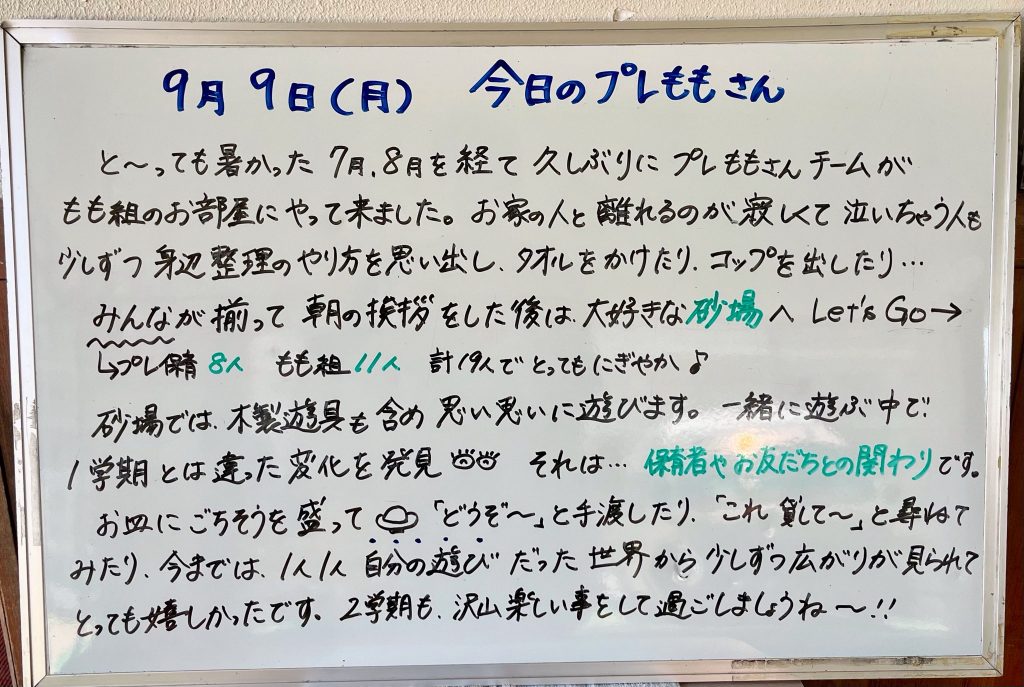 9月9日(月) 今日のプレももさん
と〜っても暑かった 7月、8月を経て 久しぶりに プレももさんチームが
もも組のお部屋にやって来ました。お家の人と離れるのが寂しくて泣いちゃう人も
少しずつ身辺整理のやり方を思い出し、タオルをかけたり、コップを出したり…
みんなが揃って 朝の挨拶をした後は、大好きな砂場へ Let's Go→
↳プレ保育 8人 もも組 11人 計19人でとってもにぎやか♪
砂場では、木製遊具も含め 思い思いに遊びます。一緒に遊ぶ中で、
1学期とは違った変化を発見 それは… 保育者やお友だちとの関わりです。
お皿にごちそうを盛って 「どうぞ〜」と手渡したり、「これ貸して〜」と尋ねて
みたり、今までは、1人1人 自分の遊びだった世界から少しずつ広がりが見られて
とっても嬉しかったです。2学期も、沢山楽しい事をして過ごしましょうね〜!!